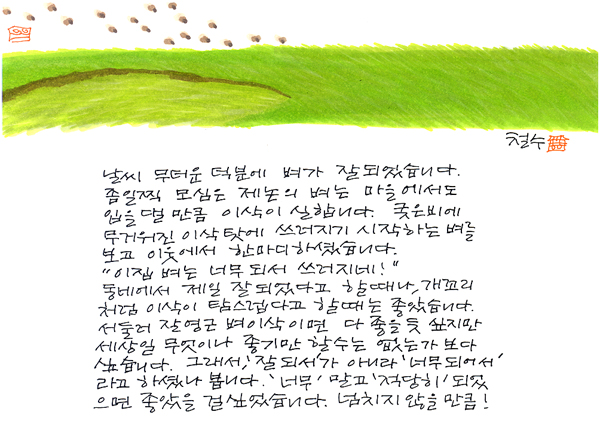 철수
날씨 무더운 덕분에 벼가 잘 되었습니다.
좀 일찍 모심은 제논의 벼는 마을에서도
입을 델 만큼 이삭이 실합니다. 궂은비에
무거워진 이삭 탓에 쓰러지기 시작하는 벼를
보고 이웃에서 한마디 하셨습니다.
"이집 벼는 너무 되서 쓰러지네!"
동네에서 제일 잘 되었다고 할때나, 개꼬리
처럼 이삭이 탐스럽다고 할때는 좋았습니다.
서둘러 잘 영근 벼이삭이면 다 좋을듯 싶지만
세상일 무엇이나 좋기만 할수는 없는가 보다
싶습니다. 그래서, '잘 되서'가 아니라 '너무 되어서'
라고 하셨나 봅니다. '너무' 말고 '적당히' 되었
으면 좋았을 걸 싶었습니다. 넘치지 않을 만큼!